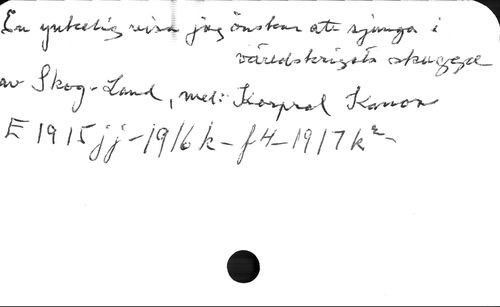 En ynkelig visa jag önskar att sjunga i
världskrigets skugga
av Skog-Land, med: Korpral Kanon
E 1915 jj - 1916 k - f 4 - 1917 k² -